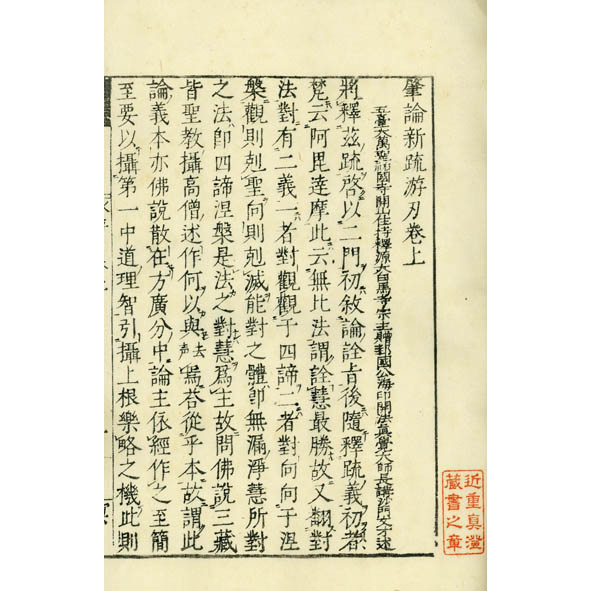 肇論新疏游刃卷上
五臺大萬聖祐國寺開山住持釋源大白馬寺宗主贈邽國公海印開法真覺大師長講沙門文才述
將釋茲疏啓以二門初敘論詮旨後隨釋疏義初者
梵云阿毘達摩此云無比法謂詮慧最勝故又翻對
法對有二義一者對觀觀于四諦二者對向向于涅
槃觀則剋聖向則剋滅能對之體即無漏淨慧所對
之法即四諦涅槃是法之對慧爲主故問佛說三藏
皆聖教攝高僧述作何以與去聲焉荅從乎本故謂此
論義本亦佛說散在方廣分中論主依經作之至簡
至要以攝第一中道理智引攝上根樂略之機此則
近重真澄
藏書之章